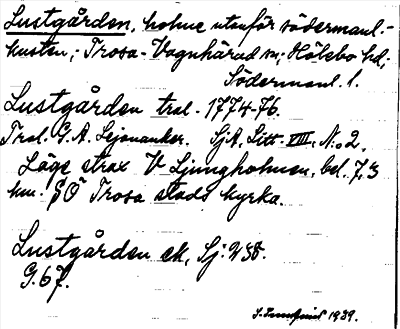 Lustgården, holme utanför södermanl.-
kusten; Trosa-Vagnhärad sn; Hölebo hd;
Södermanl. l.
Lustgården trol. 1774-76.
Trol. G. A. Lejonanker. SjA, Litt. VIII, N:o 2.
Läge strax V Ljungholmen, bel. 7,3
km. SÖ Trosa stads kyrka.
Lustgården ek, Sj: 238.
G. 67.
1939.